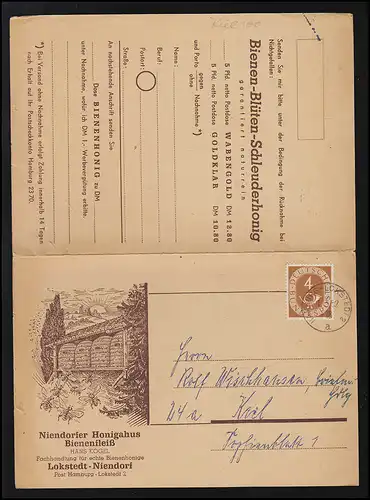 Senden Sie mir bitte unter der Bedingung der Rücknahme bei
Nichtgefallen:
Bienen-Blüten-Schleuderhonig
garantiert naturrein
5 Pfd. netto Postdose WABENGOLD DM 12.80
5 Pfd. netto Postdose GOLDKLAR DM 10.80
und Porto gegen Nachnahme *)
ohne
Name:
Beruf:
Postort:
Straße:
An nachstehende Anschrift senden Sie
Dose BIENENHONIG zu DM
unter Nachnahme, wofür ich DM 1.- Werbevergütung erbitte.
*) Bei Versand ohne Nachnahme erfolgt Zahlung innerhalb 14 Tagen
nach Erhalt auf Ihr Postscheckkonto Hamburg 2370.
4
DEUTSCHE
a
Herrn
Rolf Wischhausen,
24a Kiel
Niendorfer Honighaus
Bienenfleiß
HANS KOGEL
Fachhandlung für echte Bienenhonige
Lokstedt-Niendorf
Post Hamburg-Lokstedt 2